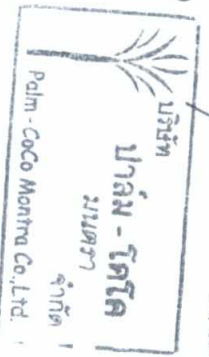 บริษัท
ปาล์ม - โคโค
มนตรา
จำกัด
Palm - CoCo Montna Co.,Ltd.